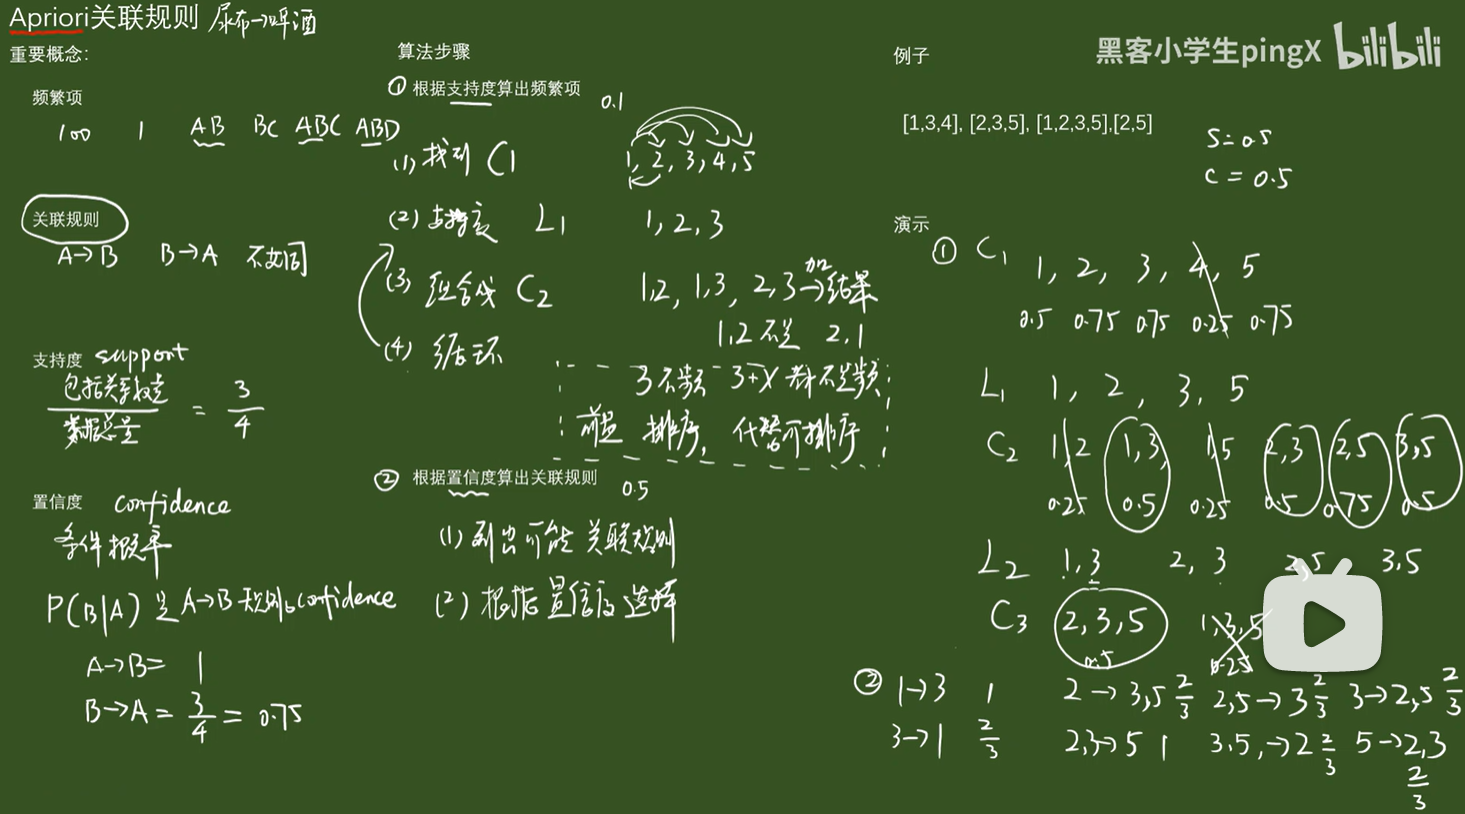 Apriori关联规则 尿布→啤酒
重要概念:
频繁项
100 1 AB BC ABC ABD
关联规则
A→B B→A 不相同
支持度 support
包括关系数量
数据总量
= 3/4
置信度 confidence
条件概率
P(B|A)是A→B规则的confidence
A→B= 1
B→A = 3/4 = 0.75
算法步骤
① 根据支持度算出频繁项 0.1
(1) 找到 C1
1, 2, 3, 4, 5
(2) 支持度 L1 1, 2, 3
(3) 组合成 C2 1,2, 1,3, 2,3 →结果
加
1,2 不是 2,1
(4) 循环
3不频 3+X 都不是频
前提 排序, 代替可排序
② 根据置信度算出关联规则 0.5
(1) 列出可能关联规则
(2) 根据置信度选择
例子
黑客小学生pingX bilibili
[1,3,4], [2,3,5], [1,2,3,5],[2,5]
S=0.5
C = 0.5
演示
① C1 1, 2, 3, 4, 5
0.5 0.75 0.75 0.25 0.75
L1 1, 2, 3, 5
C2 1,2 1,3, 1,5 2,3 2,5 3,5
0.25 0.5 0.25 0.5 0.75 0.5
L2 1,3 2,3 2,5 3,5
C3 2,3,5 1,3,5
0.5 0.25
② 1→3 1 2→3,5 2/3 2,5→3 2/3 3→2,5 2/3
3→1 2/3 2,3→5 1 3,5,→2 2/3 5→2,3 2/3